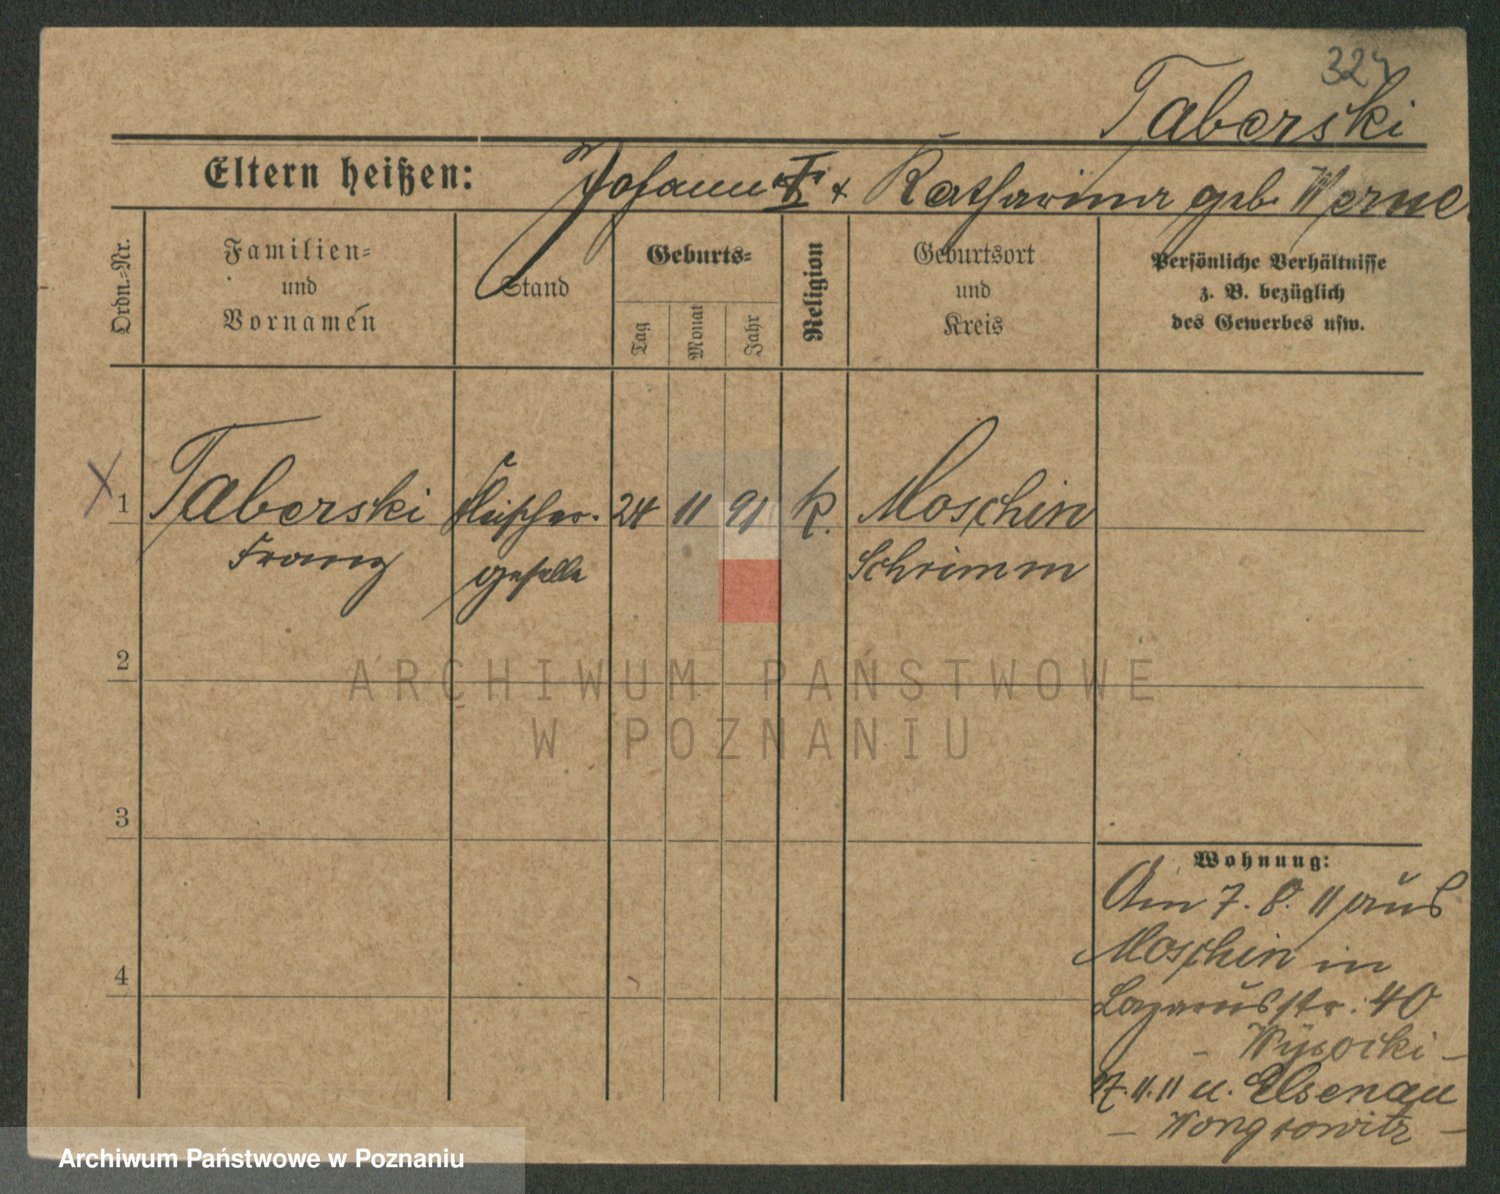 Taberski
Eltern heißen: Johann + Katharina geb. Werner
Ordn.-Nr.
Familien-
und
Vornamen
Stand
Geburts-
Tag
Monat
Jahr
Religion
Geburtsort
und
Kreis
Persönliche Verhältnisse
z. B. bezüglich
des Gewerbes usw.
1 Taberski Fleischer- 24 11 91 K. Moschin
Franz geselle Schrimm
2
ARCHIWUM PAŃSTWOWE
W POZNANIU
3
Wohnung:
Am 7. 8. 11 aus
Moschin in
4
Lazarusstr. 40
- Wysocki -
11. 11 n. Elsenau
- Wongrowitz -
Archiwum Państwowe w Poznaniu